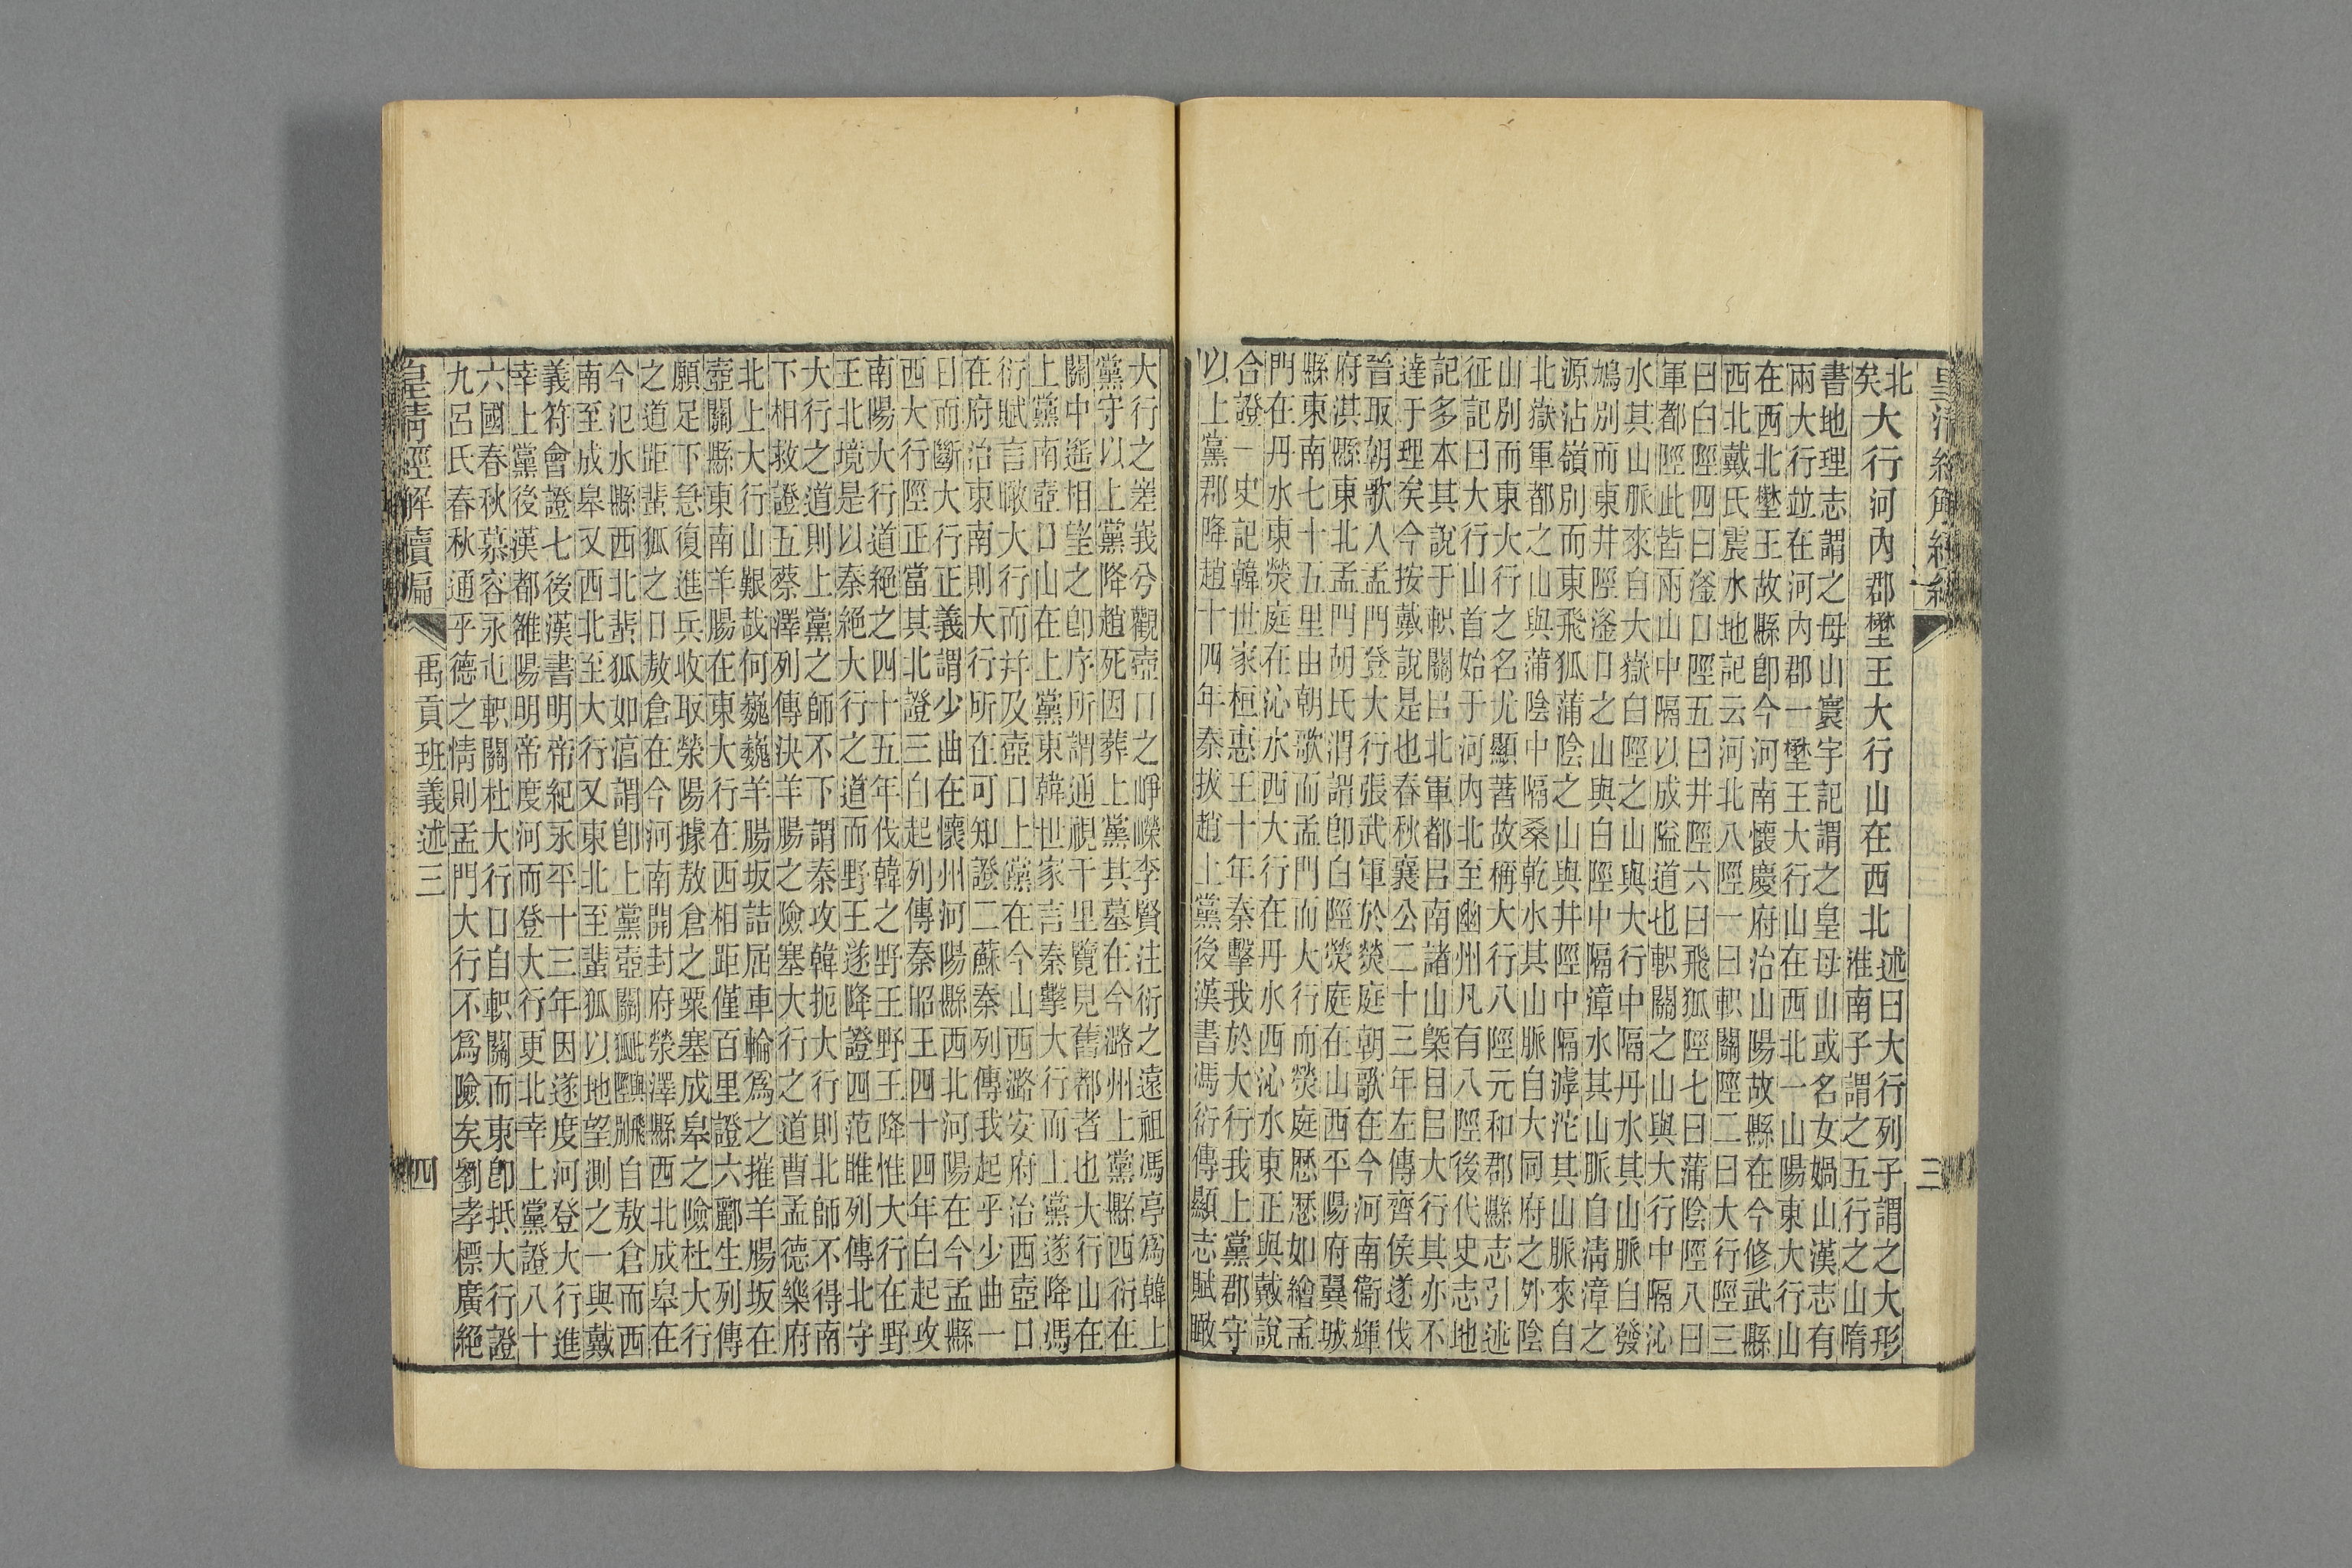 皇清經解續
三
北
矣
大行河內郡壄王大行山在西北
述曰大行列子謂之大形
淮南子謂之五行之山隋
書地理志謂之母山寰宇記謂之皇母山或名女媧山漢志有
兩大行竝在河內郡一壄王大行山在西北一山陽東大行山
在西北壄王故縣卽今河南懷慶府治山陽故縣在今修武縣
西北戴氏震水地記云河北八陘一曰軹關陘二曰大行陘三
曰白陘四曰滏口陘五曰井陘六曰飛狐陘七曰蒲陰陘八曰
軍都陘此皆兩山中隔以成隘道也軹關之山與大行中隔沁
水其山脈來自大嶽白陘之山與大行中隔丹水其山脈自發
鳩別而東井陘滏口之山與白陘中隔漳水其山脈自清漳之
源沾嶺別而東飛狐蒲陰之山與井陘中隔滹沱其山脈來自
北嶽軍都之山與蒲陰中隔桑乾水其山脈自大同府之外陰
山別而東大行之名尤顯著故稱大行八陘元和郡縣志引述
征記曰大行山首始于河內北至幽州凡有八陘後代史志地
記多本其說于軹關㠯北軍都㠯南諸山槩目㠯大行其亦不
達于理矣今按戴說是也春秋襄公二十三年左傳齊侯遂伐
晉取朝歌入孟門登大行張武軍於熒庭朝歌在今河南衞輝
府淇縣東北孟門胡氏渭謂卽白陘熒庭在山西平陽府翼城
縣東南七十五里由朝歌而孟門而大行而熒庭歷歷如繪孟
門在丹水東熒庭在沁水西大行在丹水西沁水東正與戴說
合證一史記韓世家桓惠王十年秦擊我於大行我上黨郡守
以上黨郡降趙十四年秦拔趙上黨後漢書馮衍傳顯志賦瞰
大行之嵳峩兮觀壺口之崢嶸李賢注衍之遠祖馮亭爲韓上
黨守以上黨降趙死因葬上黨其墓在今潞州上黨縣西衍在
關中遙相望之卽序所謂通視千里覽見舊都者也大行山在
上黨南壺口山在上黨東韓世家言秦擊大行而上黨遂降馮
衍賦言瞰大行而幷及壺口上黨在今山西潞安府治西壺口
在府治東南則大行所在可知證二蘇秦列傳我起乎少曲一
日而斷大行正義謂少曲在懷州河陽縣西北河陽在今孟縣
西大行陘正當其北證三白起列傳秦昭王四十四年白起攻
南陽大行道絕之四十五年伐韓之野王野王降惟大行在野
王北境是以秦絕大行之道而野王遂降證四范睢列傳北守
大行之道則上黨之師不下謂秦攻韓扼大行則北師不得南
下相救證五蔡澤列傳決羊腸之險塞大行之道曹孟德樂府
北上大行山艱哉何巍巍羊腸坂詰屈車輪爲之摧羊腸坂在
壺關縣東南羊腸在東大行在西相距僅百里證六酈生列傳
願足下急復進兵收取滎陽據敖倉之粟塞成皋之險杜大行
之道距蜚狐之口敖倉在今河南開封府滎澤縣西北成皋在
今氾水縣西北蜚狐如淳謂卽上黨壺關此與飛狐陘別自敖倉而西
南至成皋又西北至大行又東北至蜚狐以地望測之一一與戴
義符會證七後漢書明帝紀永平十三年因遂度河登大行進
幸上黨後漢都雒陽明帝度河而登大行更北幸上黨證八十
六國春秋慕容永屯軹關杜大行口自軹關而東卽抵大行證
九呂氏春秋通乎德之情則孟門大行不爲險矣劉孝標廣絕
皇清經解續編
禹貢班義述三
四